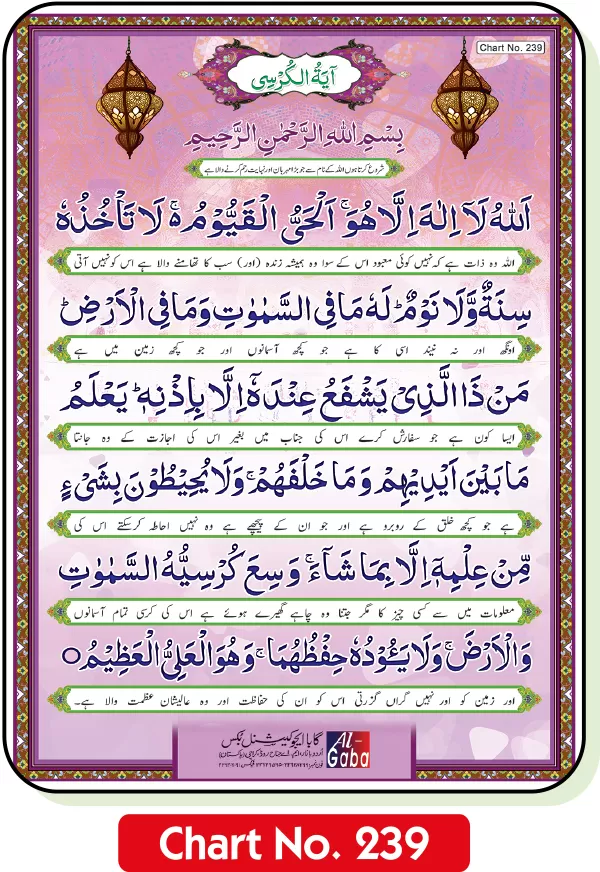 Chart No. 239
آیَۃُ الکُرْسِی
بِسْمِ اللهِ الرَّحْمٰنِ الرَّحِیْمِ
شروع کرتا ہوں اللہ کے نام سے جو بڑا مہربان اور نہایت رحم کرنے والا ہے
اَللهُ لَاۤ اِلٰهَ اِلَّا هُوَۚ اَلْحَیُّ الْقَیُّوْمُ ۚ لَا تَاْخُذُهٗ
اللہ وہ ذات ہے کہ نہیں کوئی معبود اس کے سوا وہ ہمیشہ زندہ (اور) سب کا تھامنے والا ہے اس کو نہیں آتی
سِنَةٌ وَّلَا نَوْمٌ ؕ لَهٗ مَا فِی السَّمٰوٰتِ وَمَا فِی الْاَرْضِ ؕ
اونگھ اور نہ نیند اسی کا ہے جو کچھ آسمانوں اور جو کچھ زمین میں ہے
مَنْ ذَا الَّذِیْ یَشْفَعُ عِنْدَهٗۤ اِلَّا بِاِذْنِهٖ ؕ یَعْلَمُ
ایسا کون ہے جو سفارش کرے اس کی جناب میں بغیر اس کی اجازت کے وہ جانتا
مَا بَیْنَ اَیْدِیْهِمْ وَمَا خَلْفَهُمْ ۚ وَلَا یُحِیْطُوْنَ بِشَیْءٍ
ہے جو کچھ خلق کے روبرو ہے اور جو ان کے پیچھے ہے وہ نہیں احاطہ کرسکتے اس کی
مِّنْ عِلْمِهٖۤ اِلَّا بِمَا شَآءَ ۚ وَسِعَ كُرْسِیُّهُ السَّمٰوٰتِ
معلومات میں سے کسی چیز کا مگر جتنا وہ چاہے گھیرے ہوئے ہے اس کی کرسی تمام آسمانوں
وَالْاَرْضَ ۚ وَلَا یَـُٔوْدُهٗ حِفْظُهُمَا ۚ وَهُوَ الْعَلِیُّ الْعَظِیْمُ ○
اور زمین کو اور نہیں گراں گزرتی اس کو ان کی حفاظت اور وہ عالیشان عظمت والا ہے۔
گابا ایجوکیشنل بکس
اردو بازار، ایم۔اے جناح روڈ، کراچی (پاکستان)
AL-Gaba
Chart No. 239